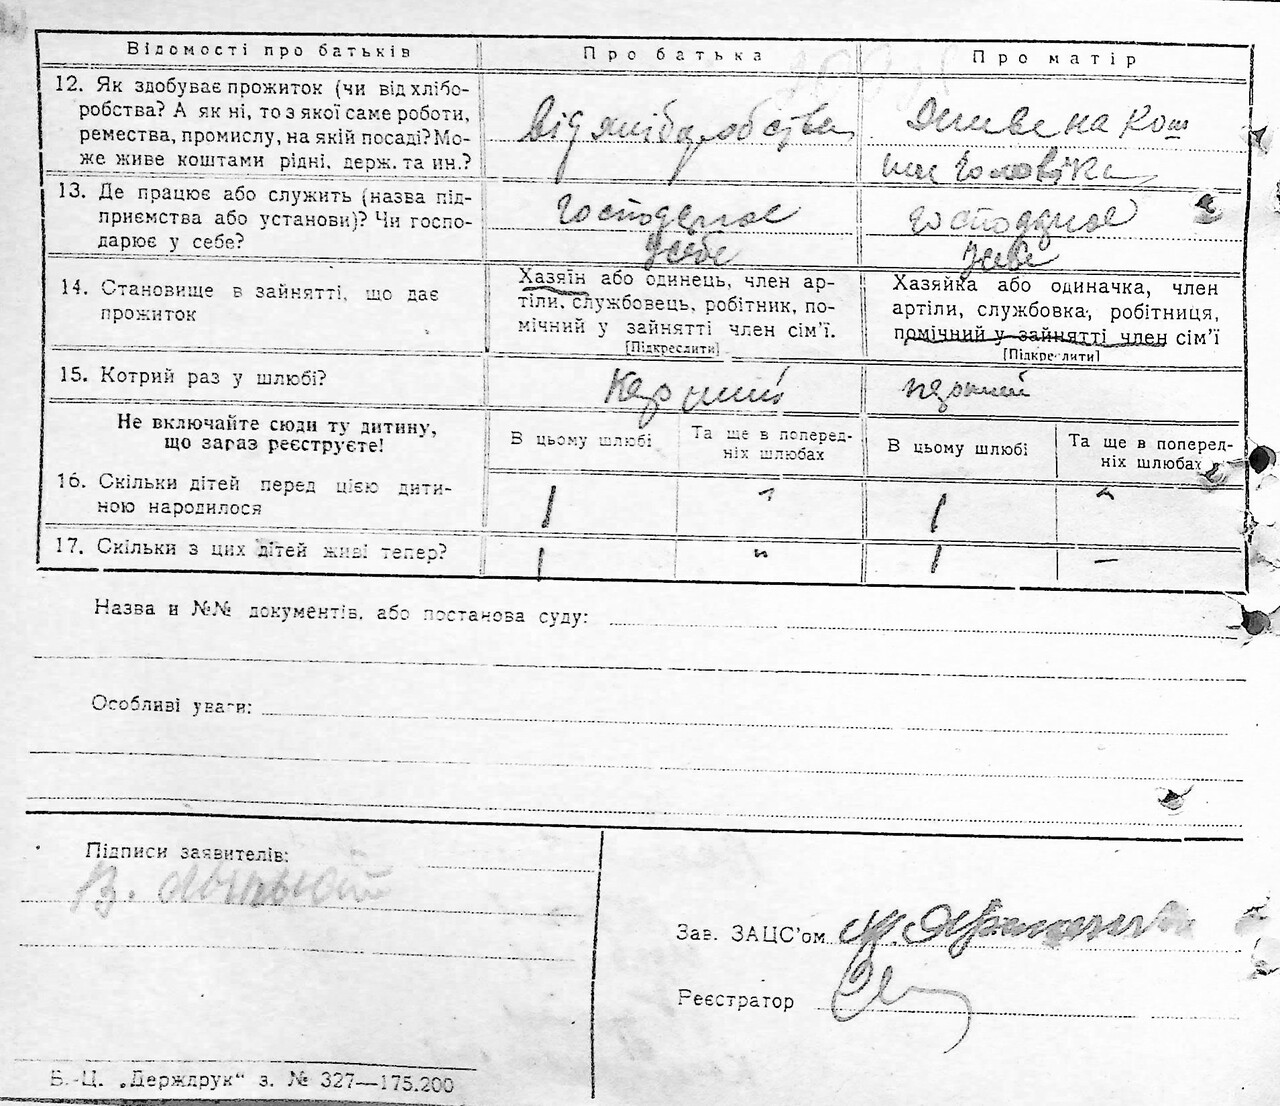 Відомості про батьків
Про батька
Про матір
12. Як здобуває прожиток (чи від хлібо-
робства? А як ні, то з якої саме роботи,
ремества, промислу, на якій посаді? Мо-
же живе коштами рідні, держ. та ин.?
Від хлібаробства
Живе на кош
тие чоловіка
13. Де працює або служить (назва під-
приємства або установи)? Чи госпо-
дарює у себе?
Господарює
у себе
Господарює
у себе
14. Становище в зайнятті, що дає
прожиток
Хазяїн або одинець, член ар-
тіли, службовець, робітник, по-
мічний у зайнятті член сім'ї.
[Підкреслити]
Хазяйка або одиначка, член
артіли, службовка, робітниця,
помічний у зайнятті член сім'ї
[Підкреслити]
15. Котрий раз у шлюбі?
перший
Не включайте сюди ту дитину,
що зараз реєструєте!
В цьому шлюбі
Та ще в поперед-
ніх шлюбах
В цьому шлюбі
Та ще в поперед-
ніх шлюбах
16. Скільки дітей перед цією дити-
ною народилося
1
1
17. Скільки з цих дітей живі тепер?
1
"
1
—
Назва и №№ документів, або постанова суду:
Особливі уваги:
Підписи заявителів:
В.
Зав. ЗАЦС'ом
Реєстратор
Б.-Ц. „Держдрук" з. № 327—175.200